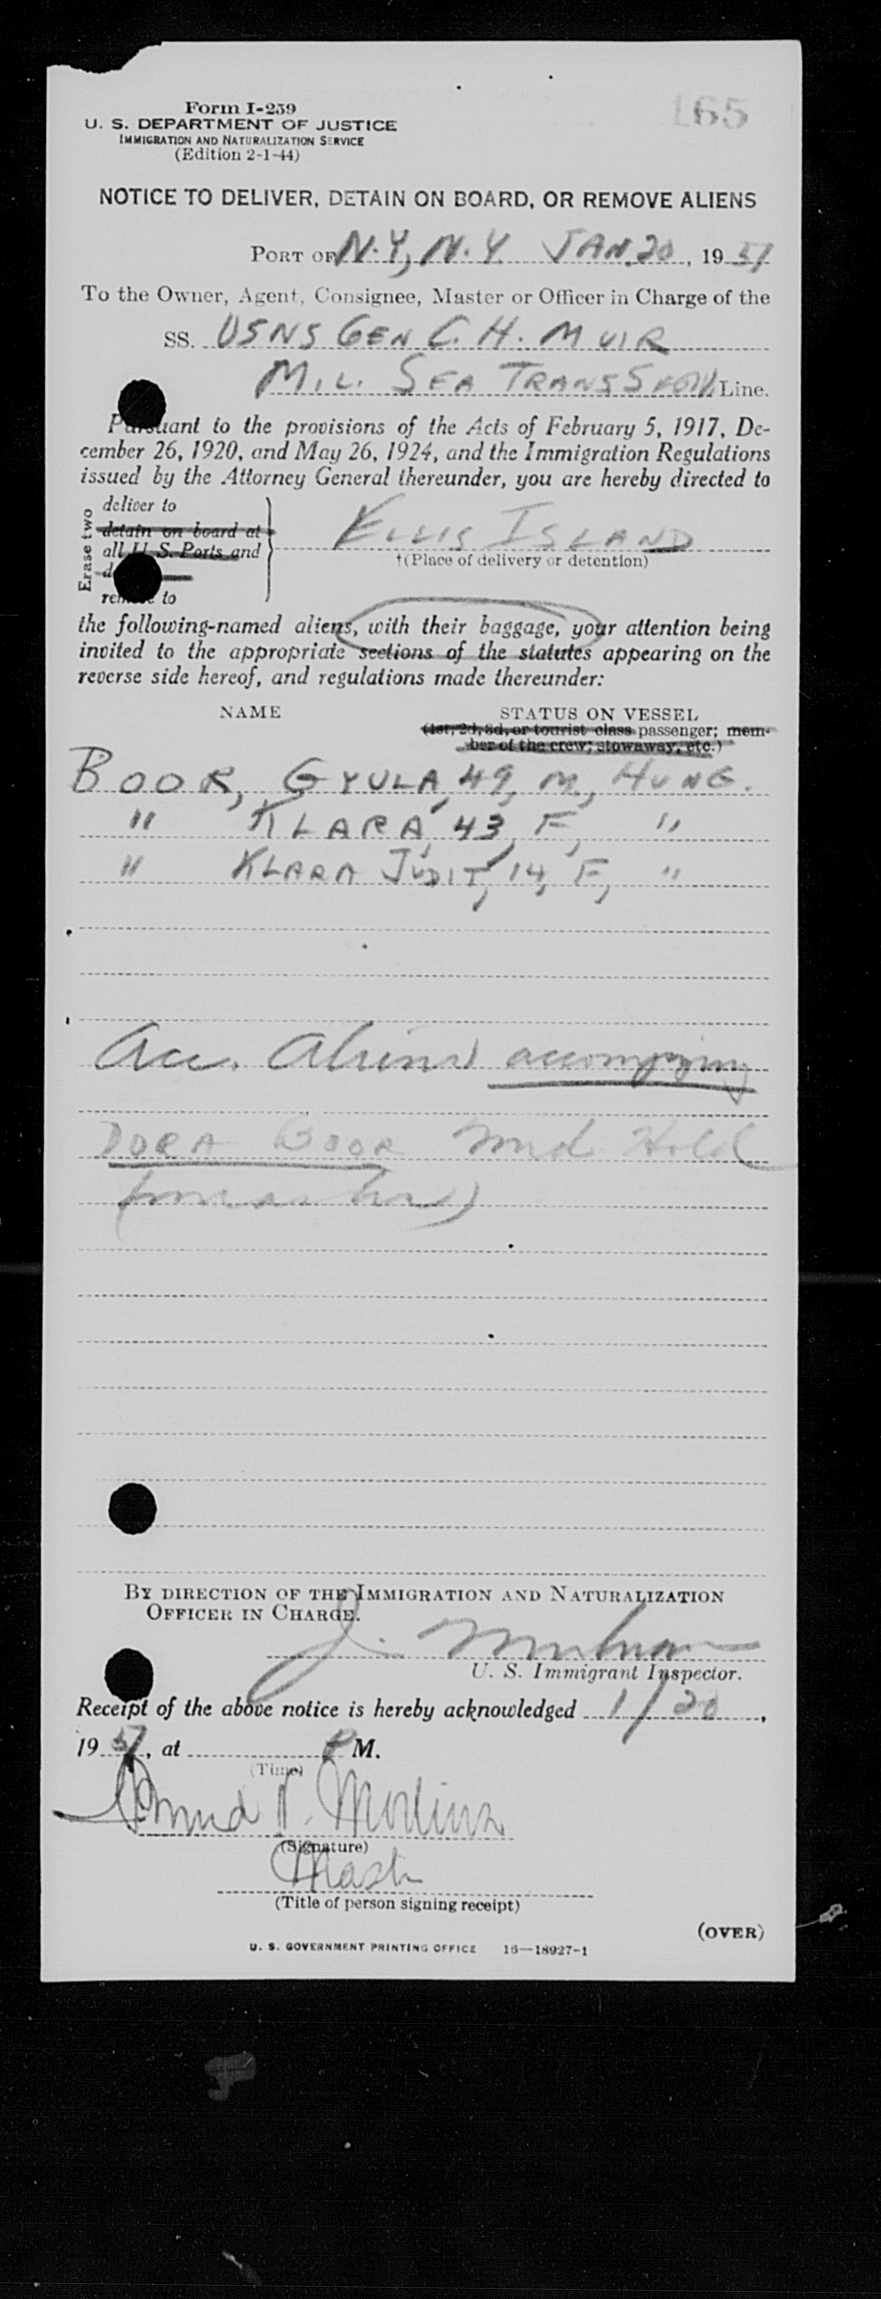 165
Form I-259
U. S. DEPARTMENT OF JUSTICE
IMMIGRATION AND NATURALIZATION SERVICE
(Edition 2-1-44)
NOTICE TO DELIVER, DETAIN ON BOARD, OR REMOVE ALIENS
PORT OF N.Y., N.Y. JAN. 20, 1951
To the Owner, Agent, Consignee, Master or Officer in Charge of the
SS. USNS GEN C. H. MUIR
MIL. SEA TRANS SERV. Line.
Pursuant to the provisions of the Acts of February 5, 1917, De-
cember 26, 1920, and May 26, 1924, and the Immigration Regulations
issued by the Attorney General thereunder, you are hereby directed to
Erase two
deliver to
detain on board at
all U. S. Ports and
remove to
ELLIS ISLAND
†(Place of delivery or detention)
the following-named aliens, with their baggage, your attention being
invited to the appropriate sections of the statutes appearing on the
reverse side hereof, and regulations made thereunder:
NAME STATUS ON VESSEL
(1st, 2d, 3d, or tourist class passenger; mem-
ber of the crew; stowaway, etc.)
BOOR, GYULA, 49, M, HUNG.
" KLARA, 43, F, "
" KLARA JUDIT, 14, F, "
Acc. Aliens accompying
DORA BOOR Med Hold
BY DIRECTION OF THE IMMIGRATION AND NATURALIZATION
OFFICER IN CHARGE.
J.
U. S. Immigrant Inspector.
Receipt of the above notice is hereby acknowledged 1/20,
1951, at P M.
(Time)
(Signature)
(Title of person signing receipt)
(OVER)
U. S. GOVERNMENT PRINTING OFFICE 16—18927-1